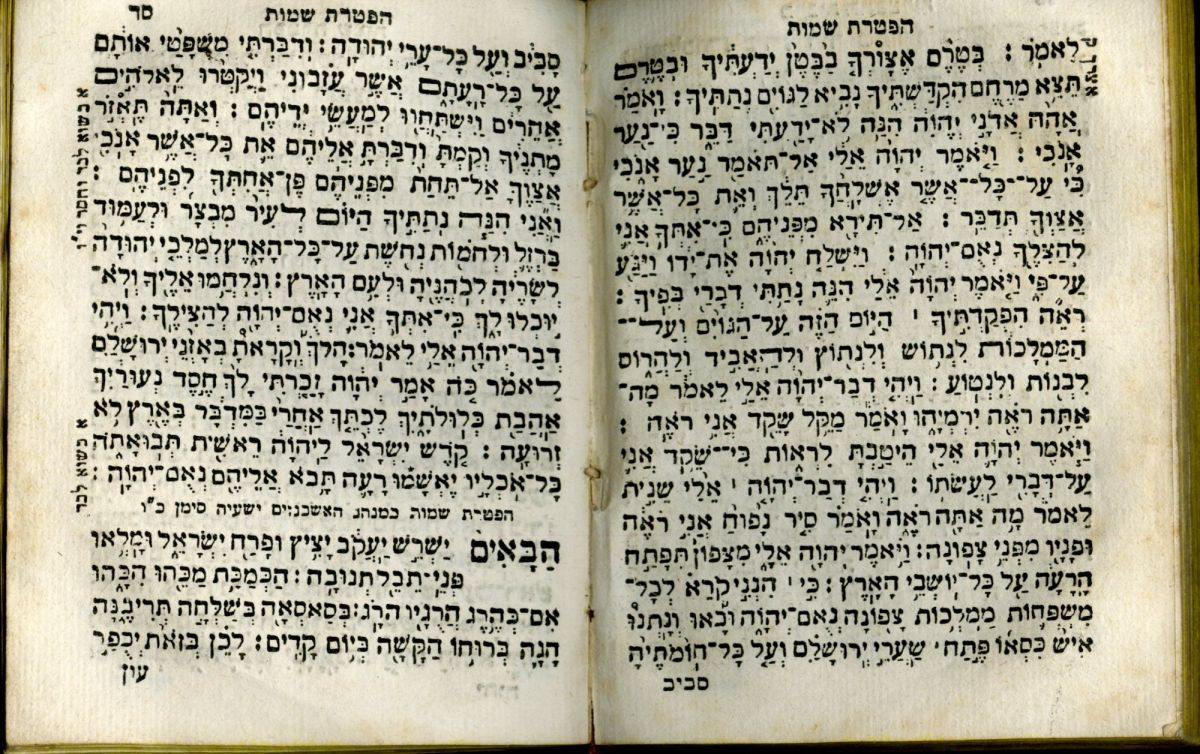 הפטרת שמות
לֵאמֹר׃ בְּטֶרֶם אֶצָּורְךָ בַבֶּטֶן יְדַעְתִּיךָ וּבְטֶרֶם
תֵּצֵא מֵרֶחֶם הִקְדַּשְׁתִּיךָ נָבִיא לַגּוֹיִם נְתַתִּיךָ׃ וָאֹמַר
אֲהָהּ אֲדֹנָי יְהֹוִה הִנֵּה לֹא־יָדַעְתִּי דַּבֵּר כִּי־נַעַר
אָנֹכִי׃ וַיֹּאמֶר יְהוָֹה אֵלַי אַל־תֹּאמַר נַעַר אָנֹכִי
כִּי עַל־כָּל־אֲשֶׁר אֶשְׁלָחֲךָ תֵּלֵךְ וְאֵת כָּל־אֲשֶׁר
אֲצַוְּךָ תְּדַבֵּר׃ אַל־תִּירָא מִפְּנֵיהֶם כִּי־אִתְּךָ אֲנִי
לְהַצִּלֶךָ נְאֻם־יְהוָֹה׃ וַיִּשְׁלַח יְהוָֹה אֶת־יָדוֹ וַיַּגַּע
עַל־פִּי וַיֹּאמֶר יְהוָֹה אֵלַי הִנֵּה נָתַתִּי דְבָרַי בְּפִיךָ׃
רְאֵה הִפְקַדְתִּיךָ ׀ הַיּוֹם הַזֶּה עַל־הַגּוֹיִם וְעַל־
הַמַּמְלָכוֹת לִנְתוֹשׁ וְלִנְתוֹץ וּלְהַאֲבִיד וְלַהֲרוֹס
לִבְנוֹת וְלִנְטוֹעַ׃ וַיְהִי דְבַר־יְהוָֹה אֵלַי לֵאמֹר מָה־
אַתָּה רֹאֶה יִרְמְיָהוּ וָאֹמַר מַקֵּל שָׁקֵד אֲנִי רֹאֶה׃
וַיֹּאמֶר יְהוָֹה אֵלַי הֵיטַבְתָּ לִרְאוֹת כִּי־שֹׁקֵד אֲנִי
עַל־דְּבָרִי לַעֲשֹׂתוֹ׃ וַיְהִי דְבַר־יְהוָֹה ׀ אֵלַי שֵׁנִית
לֵאמֹר מָה אַתָּה רֹאֶה וָאֹמַר סִיר נָפוּחַ אֲנִי רֹאֶה
וּפָנָיו מִפְּנֵי צָפוֹנָה׃ וַיֹּאמֶר יְהוָה אֵלָי מִצָּפוֹן תִּפָּתַח
הָרָעָה עַל כָּל־יוֹשְׁבֵי הָאָרֶץ׃ כִּי ׀ הִנְנִי קֹרֵא לְכָל־
מִשְׁפְּחוֹת מַמְלְכוֹת צָפוֹנָה נְאֻם־יְהוָֹה וּבָאוּ וְנָתְנוּ
אִישׁ כִּסְאוֹ פֶּתַח ׀ שַׁעֲרֵי יְרוּשָׁלִַם וְעַל כָּל־חוֹמֹתֶיהָ
סביב
הפטרת שמות סד
סָבִיב וְעַל כָּל־עָרֵי יְהוּדָה׃ וְדִבַּרְתִּי מִשְׁפָּטַי אוֹתָם
עַל כָּל־רָעָתָם אֲשֶׁר עֲזָבוּנִי וַיְקַטְּרוּ לֵאלֹהִים
אֲחֵרִים וַיִּשְׁתַּחֲווּ לְמַעֲשֵׂי יְדֵיהֶם׃ וְאַתָּה תֶּאְזֹר
מָתְנֶיךָ וְקַמְתָּ וְדִבַּרְתָּ אֲלֵיהֶם אֵת כָּל־אֲשֶׁר אָנֹכִי
אֲצַוֶּךָּ אַל־תֵּחַת מִפְּנֵיהֶם פֶּן־אֲחִתְּךָ לִפְנֵיהֶם׃
וַאֲנִי הִנֵּה נְתַתִּיךָ הַיּוֹם לְעִיר מִבְצָר וּלְעַמּוּד
בַּרְזֶל וּלְחֹמוֹת נְחֹשֶׁת עַל־כָּל־הָאָרֶץ לְמַלְכֵי יְהוּדָה
לְשָׂרֶיהָ לְכֹהֲנֶיהָ וּלְעַם הָאָרֶץ׃ וְנִלְחֲמוּ אֵלֶיךָ וְלֹא־
יוּכְלוּ לָךְ כִּי־אִתְּךָ אֲנִי נְאֻם־יְהוָֹה לְהַצִּילֶךָ׃ וַיְהִי
דְבַר־יְהוָֹה אֵלַי לֵאמֹר׃ הָלֹךְ וְקָרָאתָ בְאָזְנֵי יְרוּשָׁלִַם
לֵאמֹר כֹּה אָמַר יְהוָה זָכַרְתִּי לָךְ חֶסֶד נְעוּרַיִךְ
אַהֲבַת כְּלוּלֹתָיִךְ לֶכְתֵּךְ אַחֲרַי בַּמִּדְבָּר בְּאֶרֶץ לֹא
זְרוּעָה׃ קֹדֶשׁ יִשְׂרָאֵל לַיהוָֹה רֵאשִׁית תְּבוּאָתֹה
כָּל־אֹכְלָיו יֶאְשָׁמוּ רָעָה תָּבֹא אֲלֵיהֶם נְאֻם־יְהוָֹה׃
הפטרת שמות כמנהג האשכנזים ישעיה סימן כ״ז
הַבָּאִים יַשְׁרֵשׁ יַעֲקֹב יָצִיץ וּפָרַח יִשְׂרָאֵל וּמָלְאוּ
פְנֵי־תֵבֵל תְּנוּבָה׃ הַכְּמַכַּת מַכֵּהוּ הִכָּהוּ
אִם־כְּהֶרֶג הֲרֻגָיו הֹרָג׃ בְּסַאסְּאָה בְּשַׁלְחָהּ תְּרִיבֶנָּה
הָגָה בְּרוּחוֹ הַקָּשָׁה בְּיוֹם קָדִים׃ לָכֵן בְּזֹאת יְכֻפַּר
עון
א בשוא לבד וחסר וי״ו
א בשוא לבד